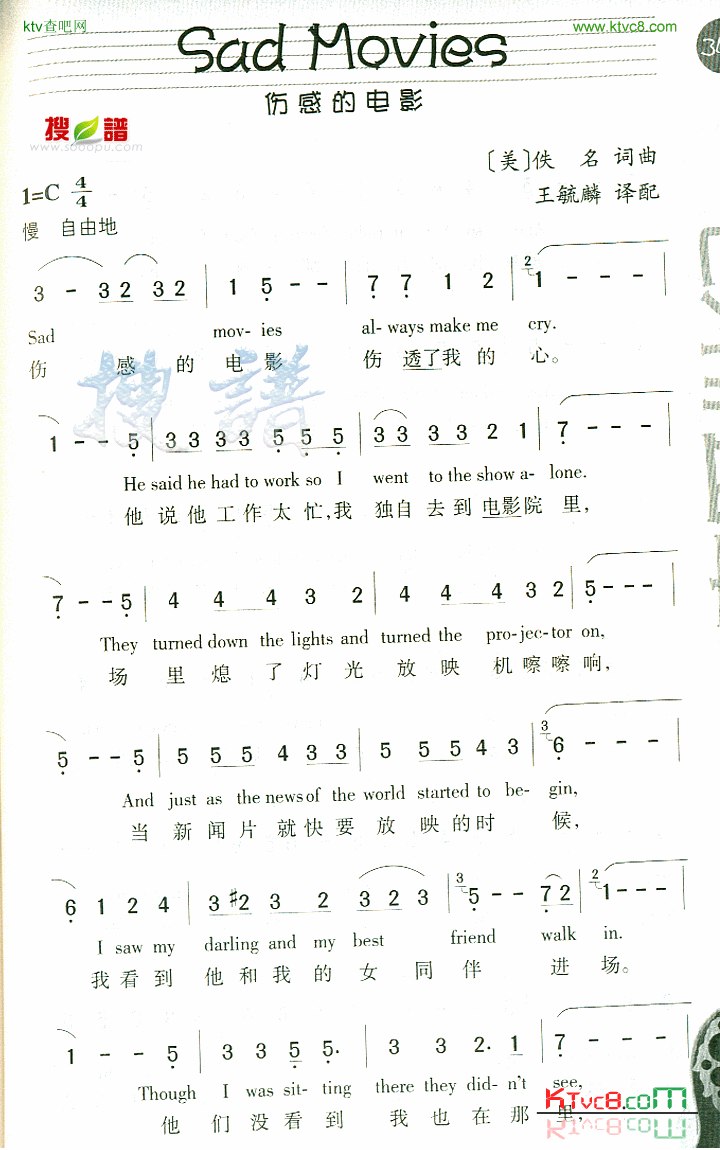 ktv查吧网
www.ktvc8.com
Sad Movies
伤感的电影
搜谱
www.sooopu.com
〔美〕佚 名 词曲
1=C 4/4
王毓麟 译配
慢 自由地
3 - 3 2 3 2 | 1 5 - - | 7 7 1 2 | 2 1 - - - |
Sad mov- ies al- ways make me cry.
伤 感 的 电 影 伤 透了我 的 心。
搜谱
1 - - 5 | 3 3 3 3 5 5 5 | 3 3 3 3 2 1 | 7 - - - |
He said he had to work so I went to the show a- lone.
他 说 他 工 作 太 忙,我 独自 去 到 电影院 里,
7 - - 5 | 4 4 4 3 2 | 4 4 4 3 2 | 5 - - - |
They turned down the lights and turned the pro-jec-tor on,
场 里 熄 了 灯 光 放 映 机 嚓 嚓 响,
5 - - 5 | 5 5 5 4 3 3 | 5 5 5 4 3 | 3 6 - - - |
And just as the news of the world started to be- gin,
当 新 闻 片 就 快 要 放 映 的 时 候,
6 1 2 4 | 3 #2 3 2 | 3 2 3 | 3 5 - - 7 2 | 2 1 - - - |
I saw my darling and my best friend walk in.
我 看 到 他 和 我 的 女 同 伴 进 场。
1 - - 5 | 3 3 5 5. | 3 3 2. 1 | 7 - - - |
Though I was sit- ting there they did- n't see,
他 们 没 看 到 我 也 在 那 里,
KTvc8.com